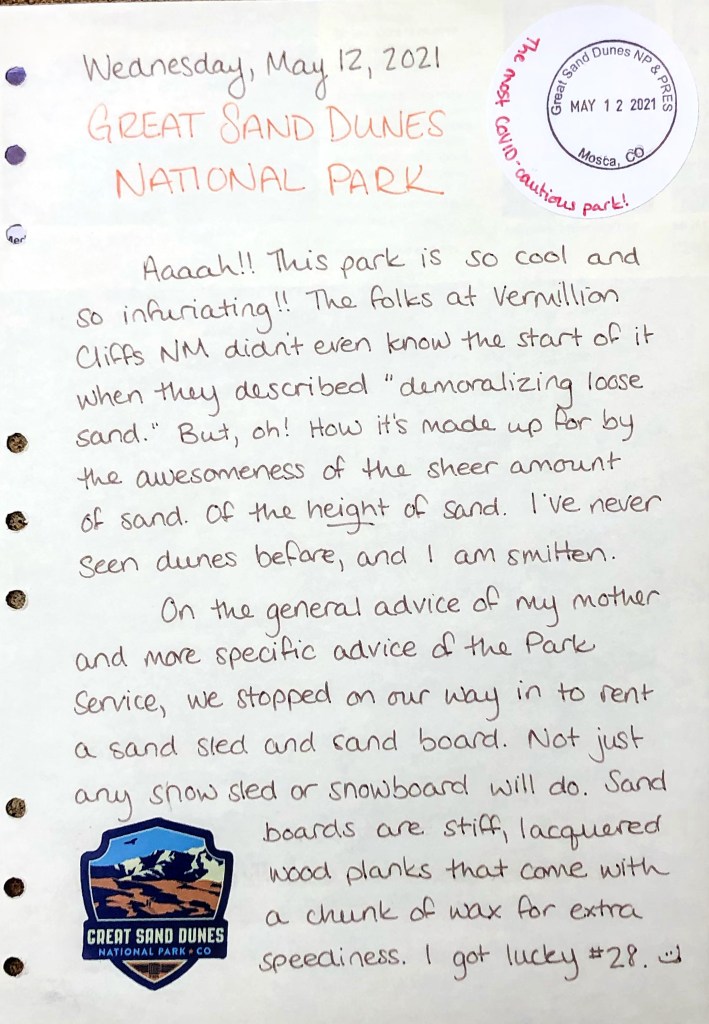 Wednesday, May 12, 2021
GREAT SAND DUNES
NATIONAL PARK
The most COVID-cautious park!
Great Sand Dunes NP & PRES
MAY 12 2021
Mosca, CO
Aaaah!! This park is so cool and
so infuriating!! The folks at Vermillion
Cliffs NM didn't even know the start of it
when they described "demoralizing loose
sand." But, oh! How it's made up for by
the awesomeness of the sheer amount
of sand. Of the height of sand. I've never
seen dunes before, and I am smitten.
On the general advice of my mother
and more specific advice of the Park
Service, we stopped on our way in to rent
a sand sled and sand board. Not just
any snow sled or snowboard will do. Sand
boards are stiff, lacquered
wood planks that come with
a chunk of wax for extra
speediness. I got lucky #28.
GREAT SAND DUNES
NATIONAL PARK ★ CO